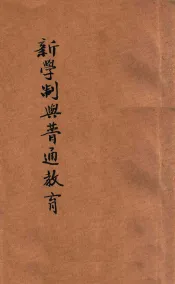 新學制與普通教育